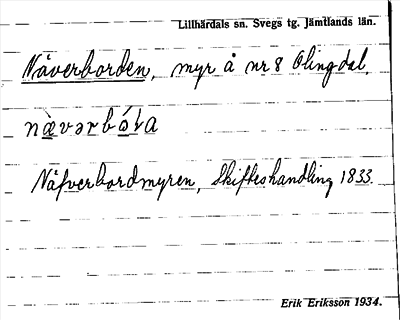 Lillhärdals sn. Svegs tg. Jämtlands län.
Näverborden, myr å nr 8 Olingdal.
nàvərbó̱ta
Näfverbordmyren, Skifteshandling 1833.
Erik Eriksson 1934.